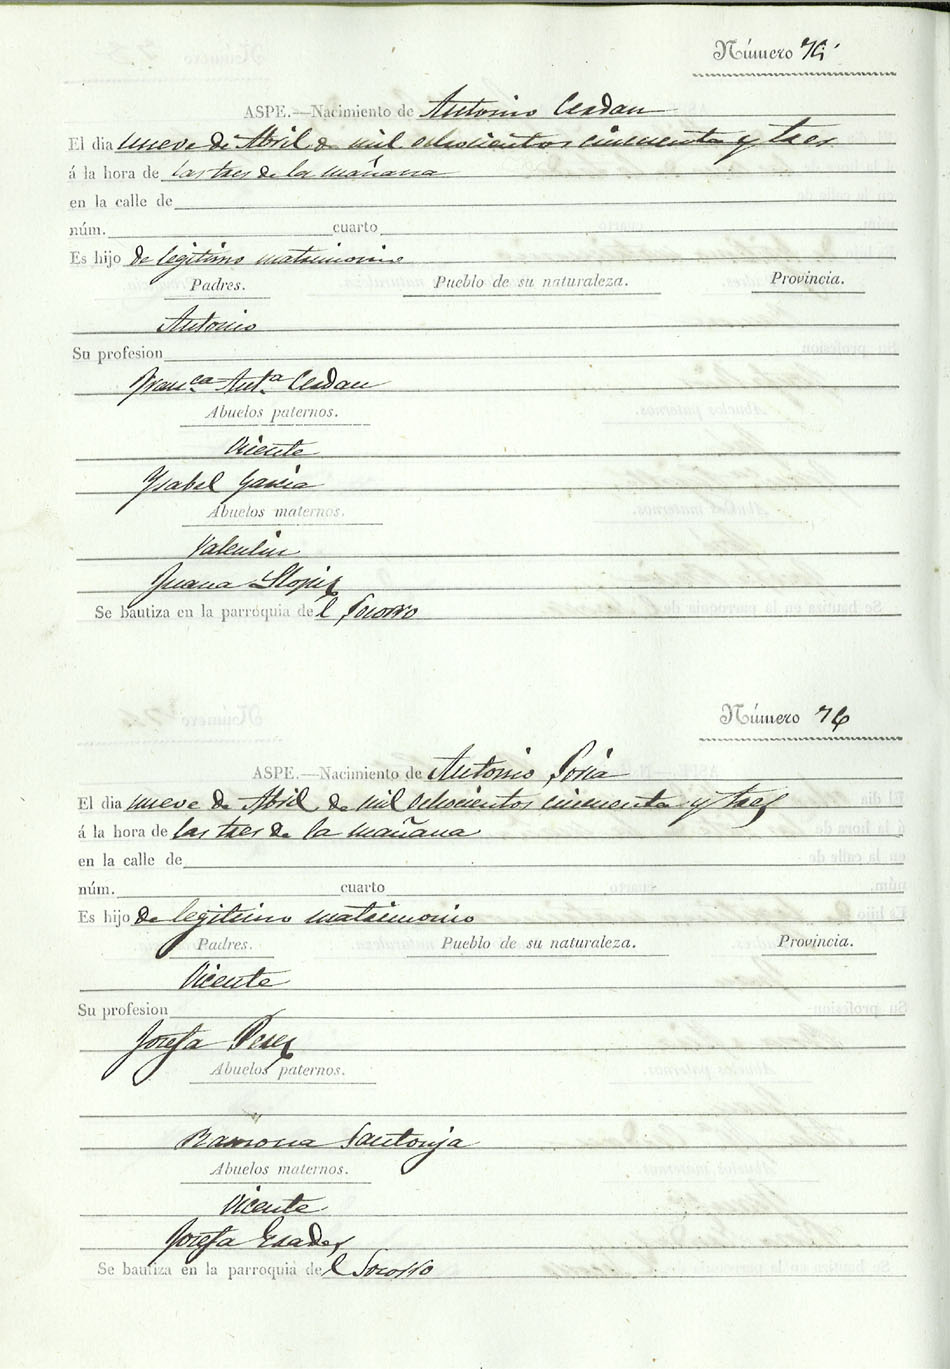 Número
ASPE.—Nacimiento de Antonio Cerdan
El dia nueve de Abril de mil ochocientos cincuenta y tres
á la hora de las tres de la mañana
en la calle de
núm. cuarto
Es hijo de legitimo matrimonio
Padres. Pueblo de su naturaleza. Provincia.
Antonio
Su profesion
Franca Anta Cerdan
Abuelos paternos.
Vicente
Ysabel Garcia
Abuelos maternos.
Valentin
Juana Llopis
Se bautiza en la parroquia del Socorro
Número 76
ASPE.—Nacimiento de Antonio Soria
El dia nueve de Abril de mil ochocientos cincuenta y tres
á la hora de las tres de la mañana
en la calle de
núm. cuarto
Es hijo de legitimo matrimonio
Padres. Pueblo de su naturaleza. Provincia.
Vicente
Su profesion
Josefa Perez
Abuelos paternos.
Ramona Santonja
Abuelos maternos.
Vicente
Josefa
Se bautiza en la parroquia del Socorro